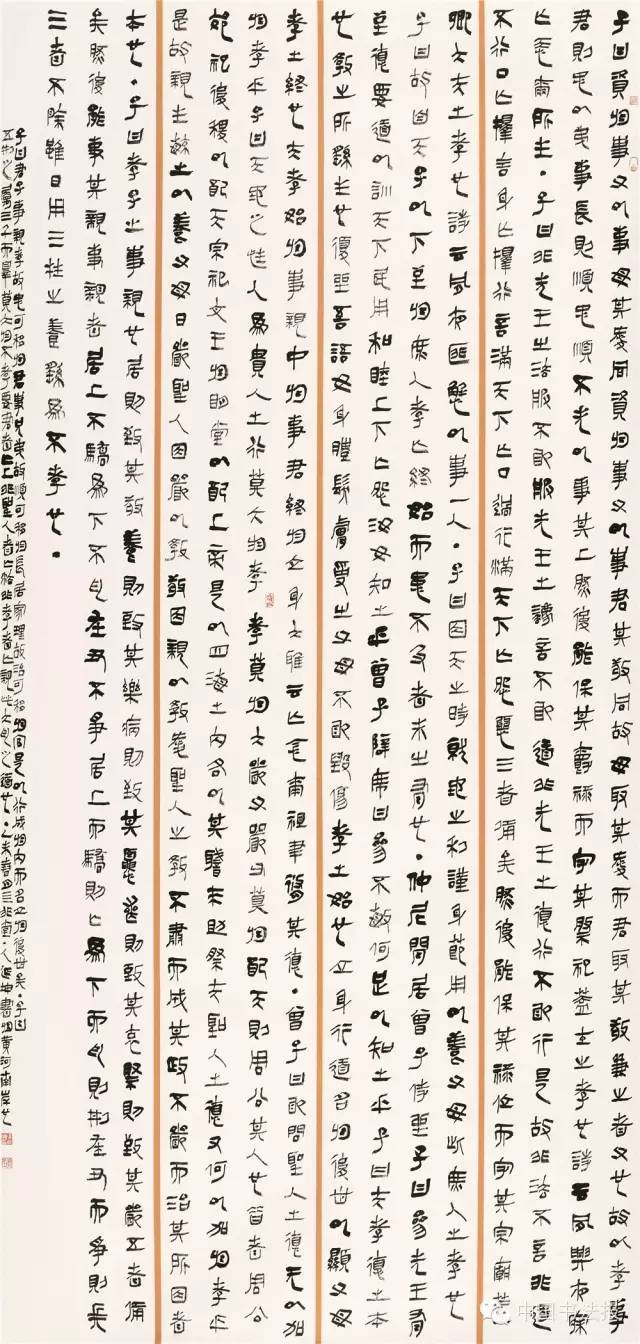 子曰資於事父以事母其愛同資於事父以事君其敬同故母取其愛而君取其敬兼之者父也故以孝事
君則忠以弟事長則順忠順不失以事其上然後能保其爵祿而守其祭祀蓋士之孝也詩云夙興夜寐
亡忝爾所生。子曰非先王之法服不敢服先王之法言不敢道非先王之德行不敢行是故非法不言非道
不行口亡擇言身亡擇行言滿天下亡口過行滿天下亡怨惡三者備矣然後能保其祿位而守其宗廟蓋
卿大夫之孝也詩云夙夜匪懈以事一人。子曰因天之時就地之利謹身節用以養父母此庶人之孝也
子曰故自天子以下至於庶人孝亡終始而患不及者未之有也。仲尼閒居曾子侍坐子曰參先王有
至德要道以訓天下民用和睦上下亡怨汝知之乎曾子避席曰參不敏何足以知之乎子曰夫孝德之本
也教之所繇生也復坐吾語女身體髮膚受之父母不敢毀傷孝之始也立身行道名於後世以顯父母
孝之終也夫孝始於事親中於事君終於立身大雅云亡念爾祖聿脩其德。曾子曰敢問聖人之德亡以加
於孝乎子曰天地之性人爲貴人之行莫大於孝孝莫於大嚴父嚴父莫於配天則周公其人也昔者周公
郊祀后稷以配天宗祀文王於明堂以配上帝是以四海之內各以其職來助祭夫聖人之德又何以加於孝乎
是故親生毓之以養父母日嚴聖人因嚴以教敬因親以教愛聖人之教不肅而成其政不嚴而治其所因者
本也。子曰孝子之事親也居則致其敬養則致其樂病則致其憂喪則致其哀祭則致其嚴五者備
矣然後能事其親事親者居上不驕爲下不亂在醜不爭居上而驕則亡爲下而亂則刑在醜而爭則兵
三者不除雖日用三牲之養繇爲不孝也。
子曰君子事親孝故忠可移於君事兄弟故順可移於長居家理故治可移於官是以行成於內而名立於後世矣。子曰
五刑之屬三千而辠莫大於不孝要君者亡上非聖人者亡法非孝者亡親此大亂之道也。
中国书法报